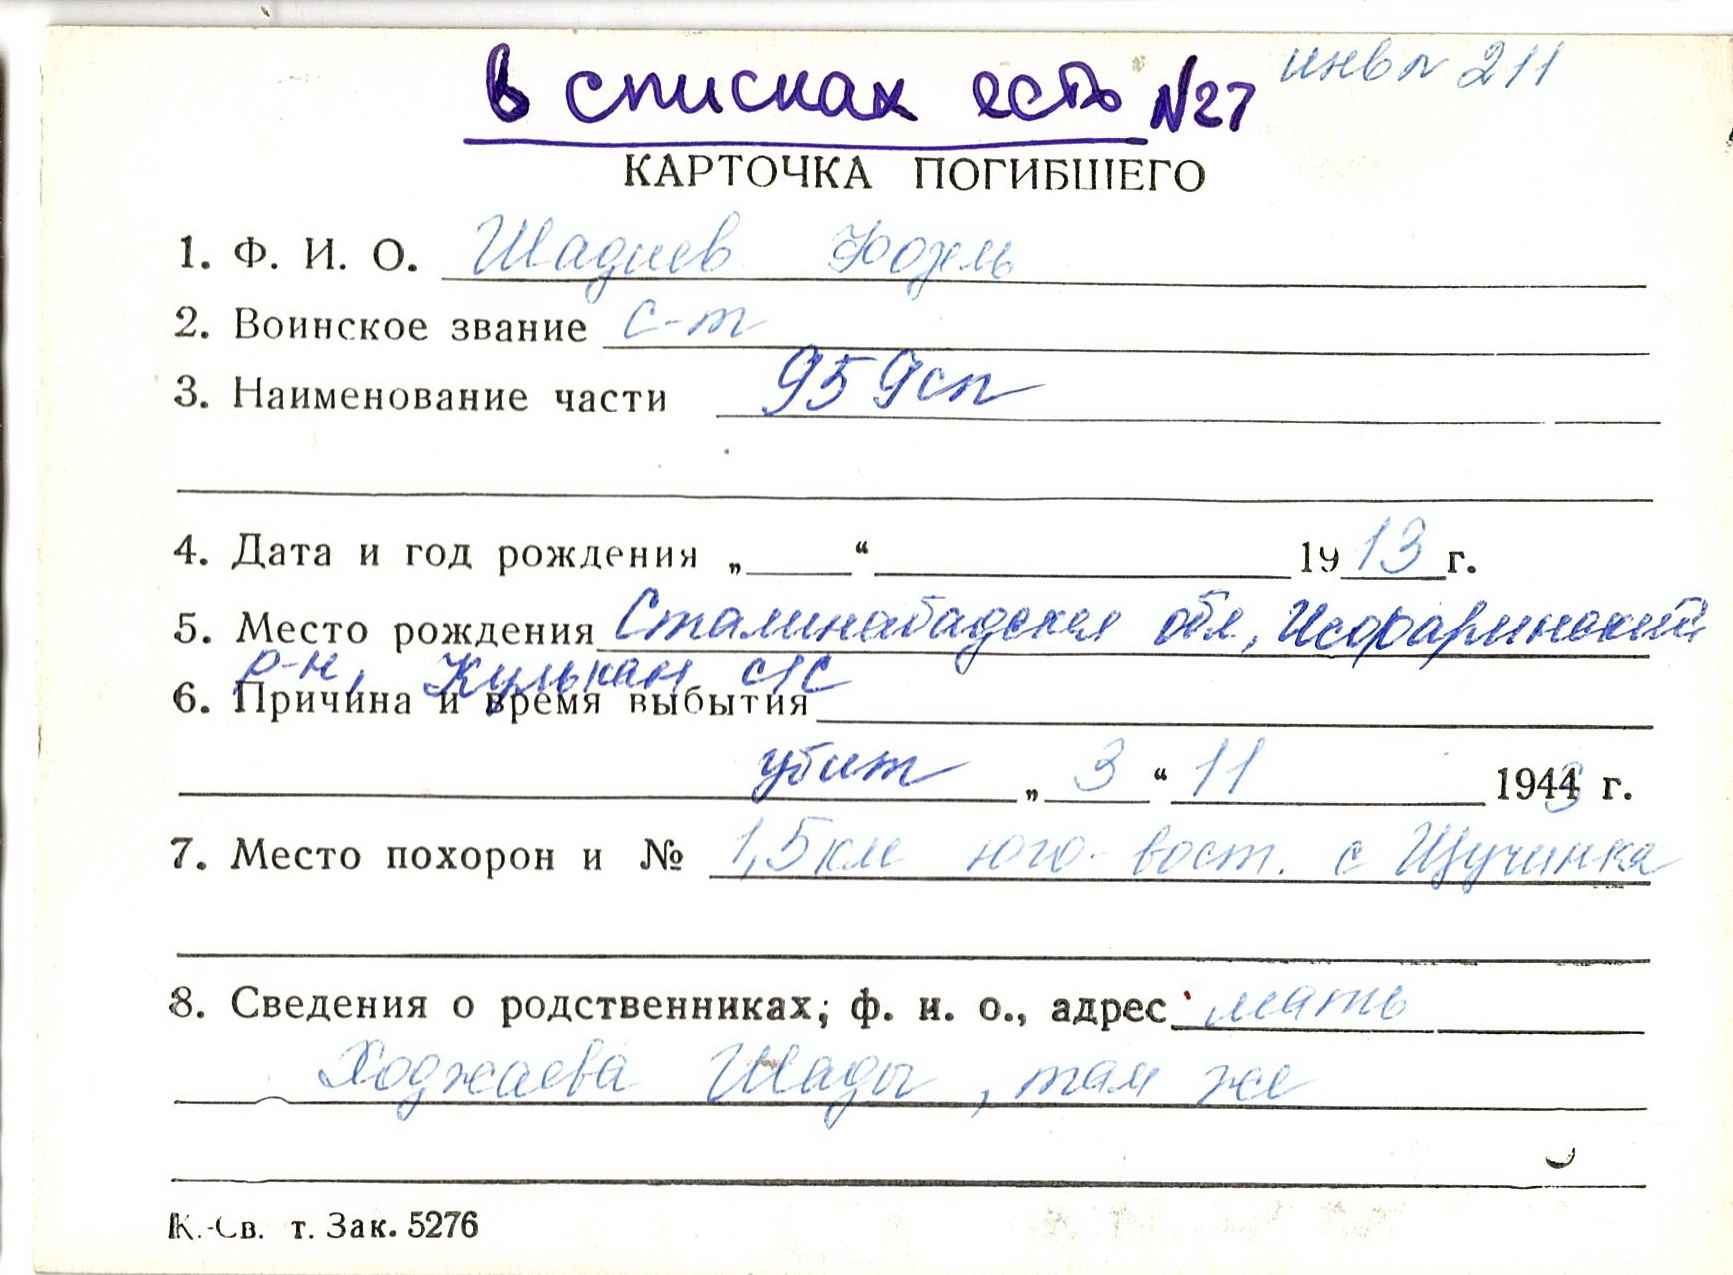 в списках есть N27 инв № 211
КАРТОЧКА ПОГИБШЕГО
1. Ф. И. О. Шадиев Фозель
2. Воинское звание с-т
3. Наименование части 959сп
4. Дата и год рождения „ “ 1913 г.
5. Место рождения Сталинабадская обл, Исфаринский
р-н, Кулькан с/с
6. Причина и время выбытия
убит „ 3 “ 11 1943 г.
7. Место похорон и № 1,5 км юго-вост. с Щучинка
8. Сведения о родственниках; ф. и. о., адрес мать
Ходжаева Шады, там же
т. Зак. 5276